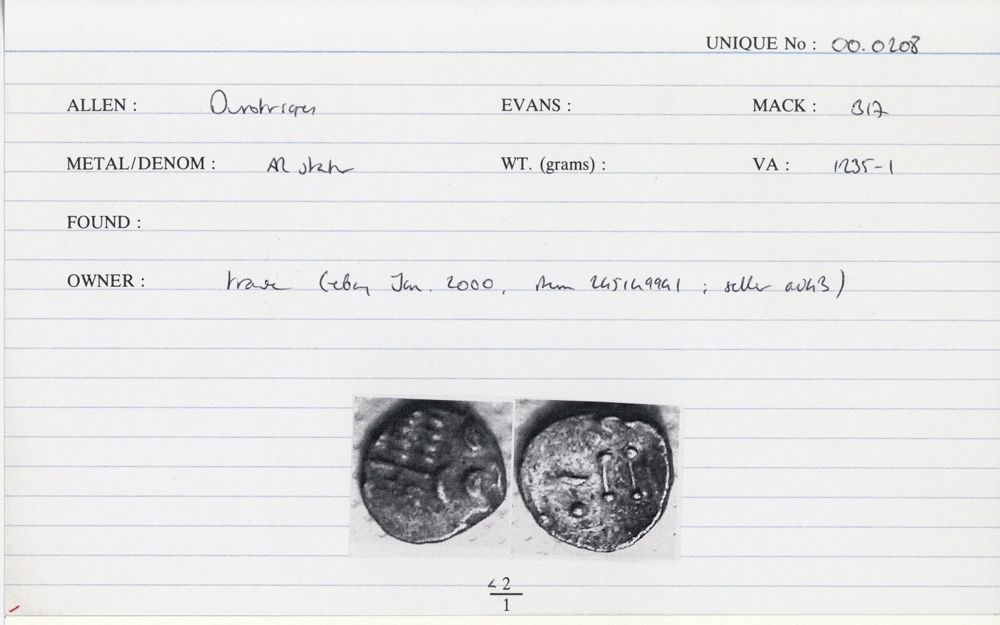 UNIQUE No : 00.0208
ALLEN : Durotriges EVANS : MACK : 317
METAL/DENOM : AR stater WT. (grams) : VA : 1235-1
FOUND :
OWNER : trade (ebay Jan. 2000, item 245149941 ; seller )
< 2
1